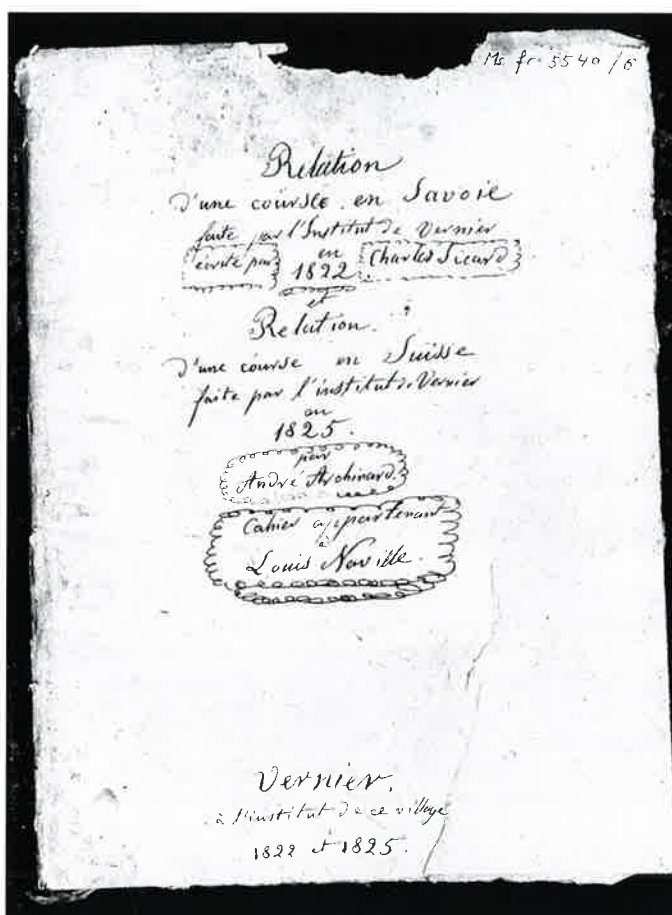 Ms. fr. 5540 / 6
Relation
d'une course en Savoie
faite par l'Institut de Vernier
écrite par en Charles Sicard
1822
et
Relation
d'une course en Suisse
faite par l'institut de Vernier
en
1825.
par
André Archinard.
Cahier appartenant
à
Louis Naville.
Vernier.
à l'institut de ce village
1822 et 1825.